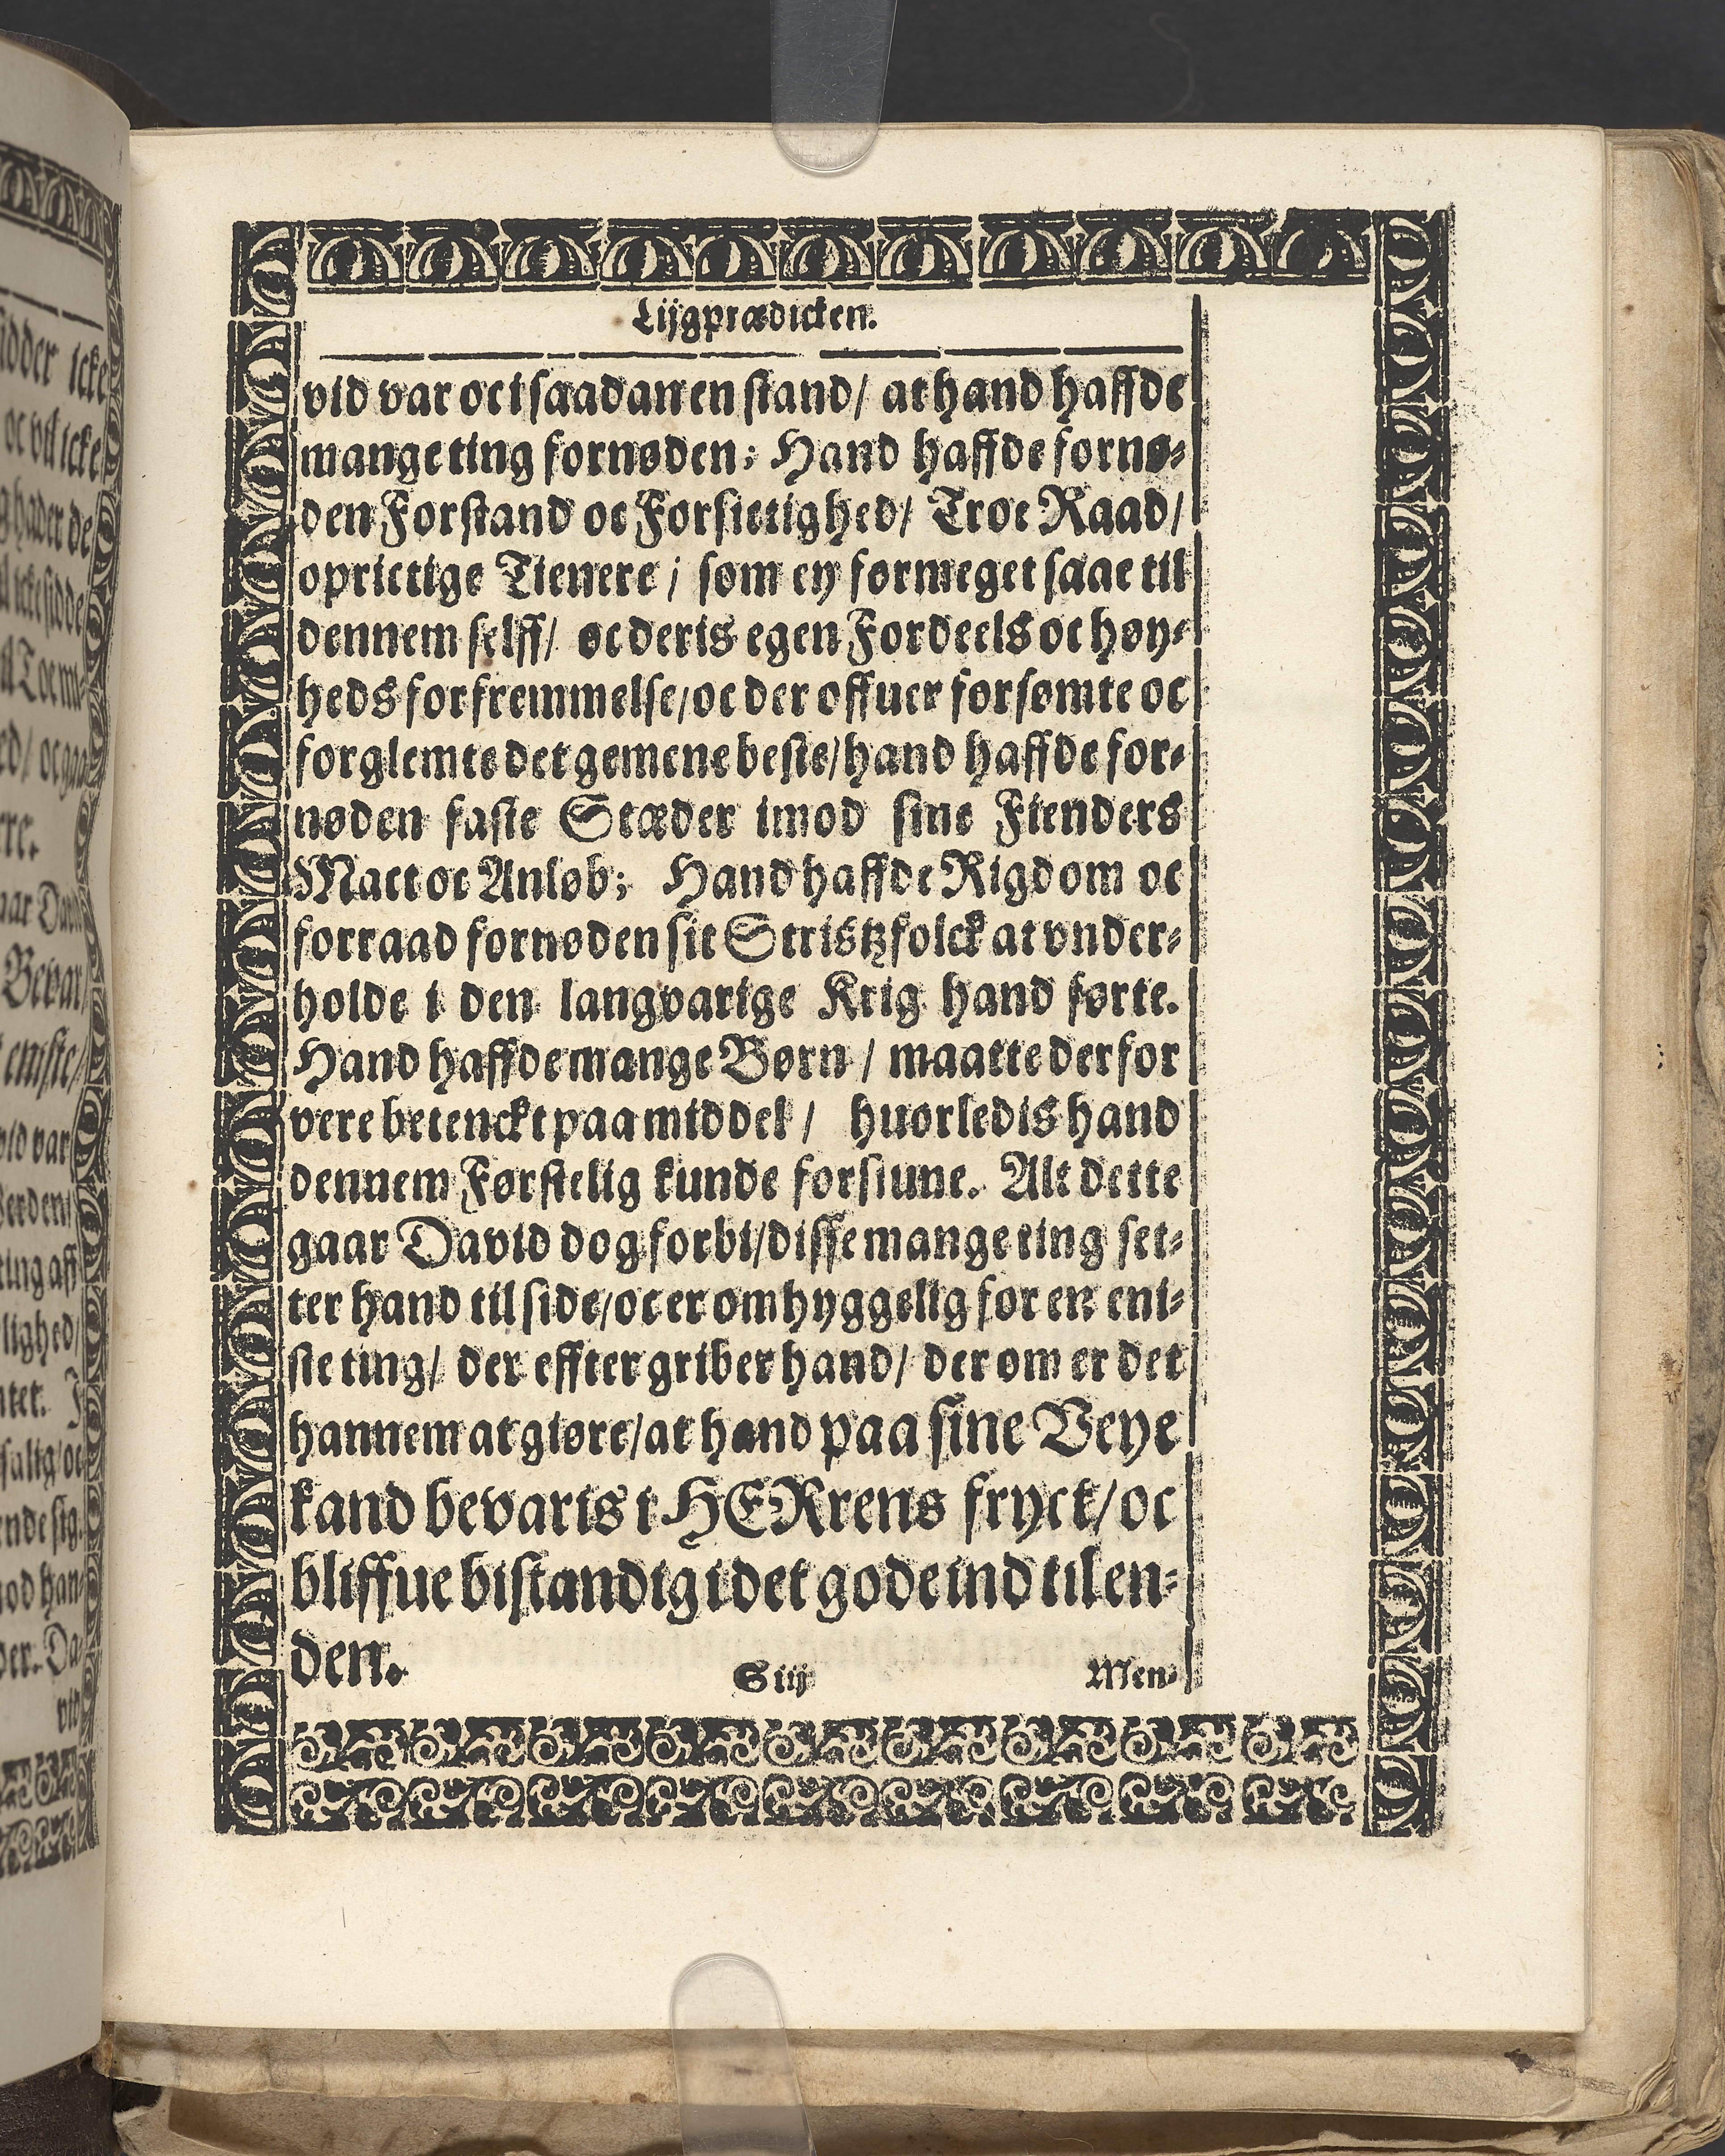 Lijgprædicken.
vid var oc i saadan en stand/ at hand haffde
mange ting fornøden; Hand haffde fornø-
den Forstand oc Forsictighed/ Troe Raad/
oprictige Tienere/ som ey for meget saae til
dennem selff/ oc deris egen Fordeels oc høy-
heds forfremmelse/ oc der offuer forsømte oc
forglemte det gemene beste/ hand haffde for-
nøden faste Stæder imod sine Fienders
Mact oc Anløb; Hand haffde Rigdom oc
forraad fornøden sit Stristzfolck at vnder-
holde i den langvarige Krig hand førte.
Hand haffde mange Børn/ maatte der for
vere betenckt paa middel/ huorledis hand
dennem Førstelig kunde forsiune. Alt dette
gaar David dog forbi/ disse mange ting set-
ter hand til side/ oc er omhyggelig for en eni-
ste ting/ der effter griber hand/ der om er det
hannem at giøre/ at hand paa sine Veye
kand bevaris i HERrens fryct/ oc
bliffue bistandig i det gode ind til en-
den.
S iij Men
idder icke
oc vil icke
ighader de
il icke sidde
ere.
aar David
Bevar
eniste/
vid var
ting aff
lighed/
salig/ oc
ende sig
mod han-
der. Da-
vid